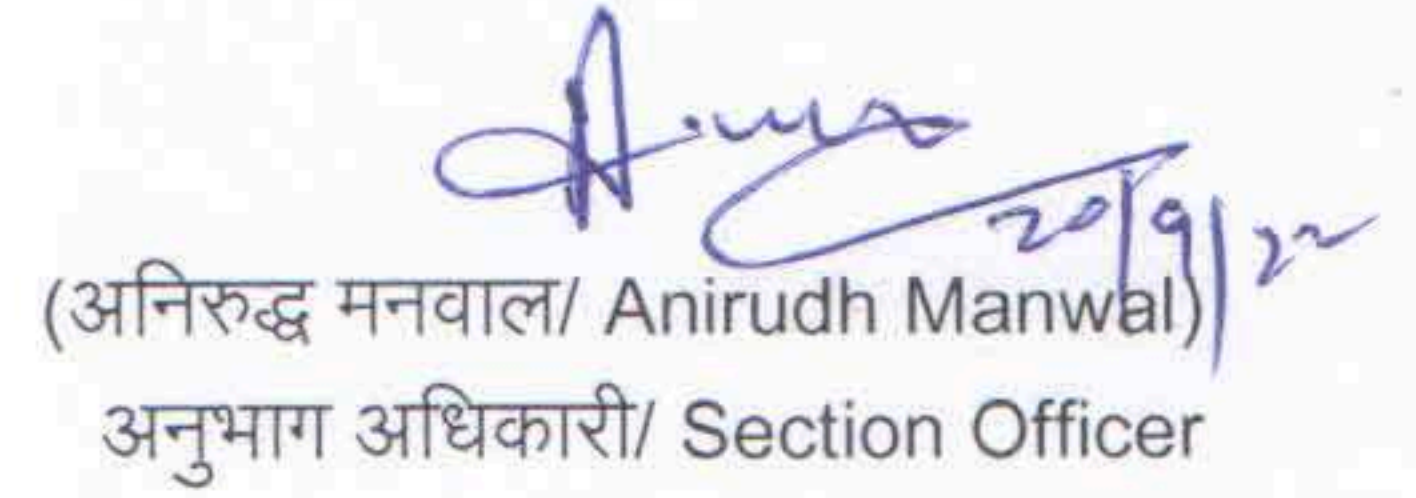 20/9/22
(अनिरुद्ध मनवाल/ Anirudh Manwal)
अनुभाग अधिकारी/ Section Officer